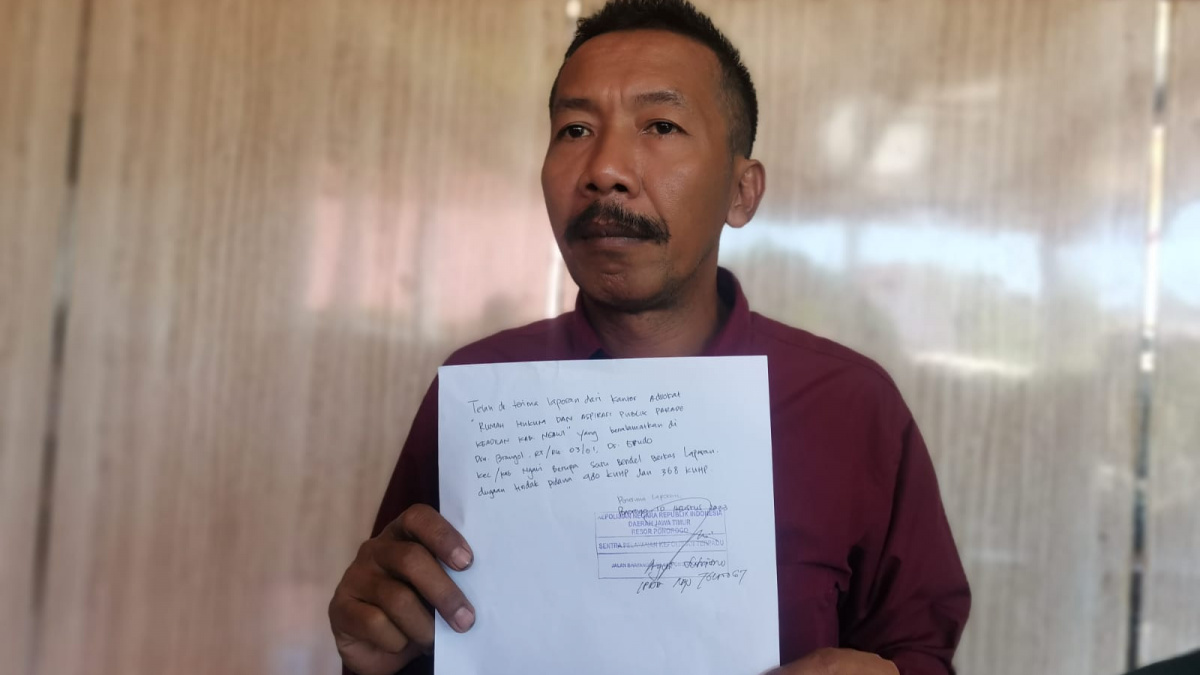 Telah di terima Laporan dari Kantor Advokat
"RUMAH HUKUM DAN ASPIRASI PUBLIK PARADE
KEADILAN KAB. NGAWI" yang beralamatkan di
Dsn. RT/RW 03/01. Ds.
Kec/Kab Ngawi Berupa Satu Bendel Berkas Laporan.
dugaan tindak pidana KUHP dan 368 KUHP
Penerima Laporan
KEPOLISIAN NEGARA REPUBLIK INDONESIA
DAERAH JAWA TIMUR
RESOR PONOROGO
SENTRA PELAYANAN KEPOLISIAN TERPADU
JALAN